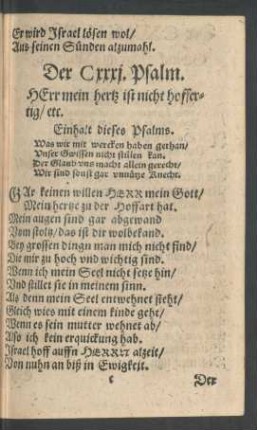 Er wird Israel lösen wol/
Aus seinen Sünden alzumahl.
Der Cxxxj. Psalm.
HErr mein hertz ist nicht hoffer-
tig/ etc.
Einhalt dieses Psalms.
Was wir mit wercken haben gethan/
Vnser Gwissen nicht stillen kan.
Der Glaub vns macht allein gerecht/
Wir sind sonst gar vnnütze Knecht.
GAr keinen willen HERR mein Gott/
Mein hertze zu der Hoffart hat.
Mein augen sind gar abgewand
Vom stoltz/ das ist dir wolbekand.
Bey grossen dingn man mich nicht find/
Die mir zu hoch vnd wichtig sind.
Wenn ich mein Seel nicht setze hin/
Vnd stillet sie in meinem sinn.
Als denn mein Seel entwehnet steht/
Gleich wies mit einem kinde geht/
Wenn es sein mutter wehnet ab/
Also ich kein erquickung hab.
Israel hoff auffn HERRN alzeit/
Von nuhn an biß in Ewigkeit.
c Der